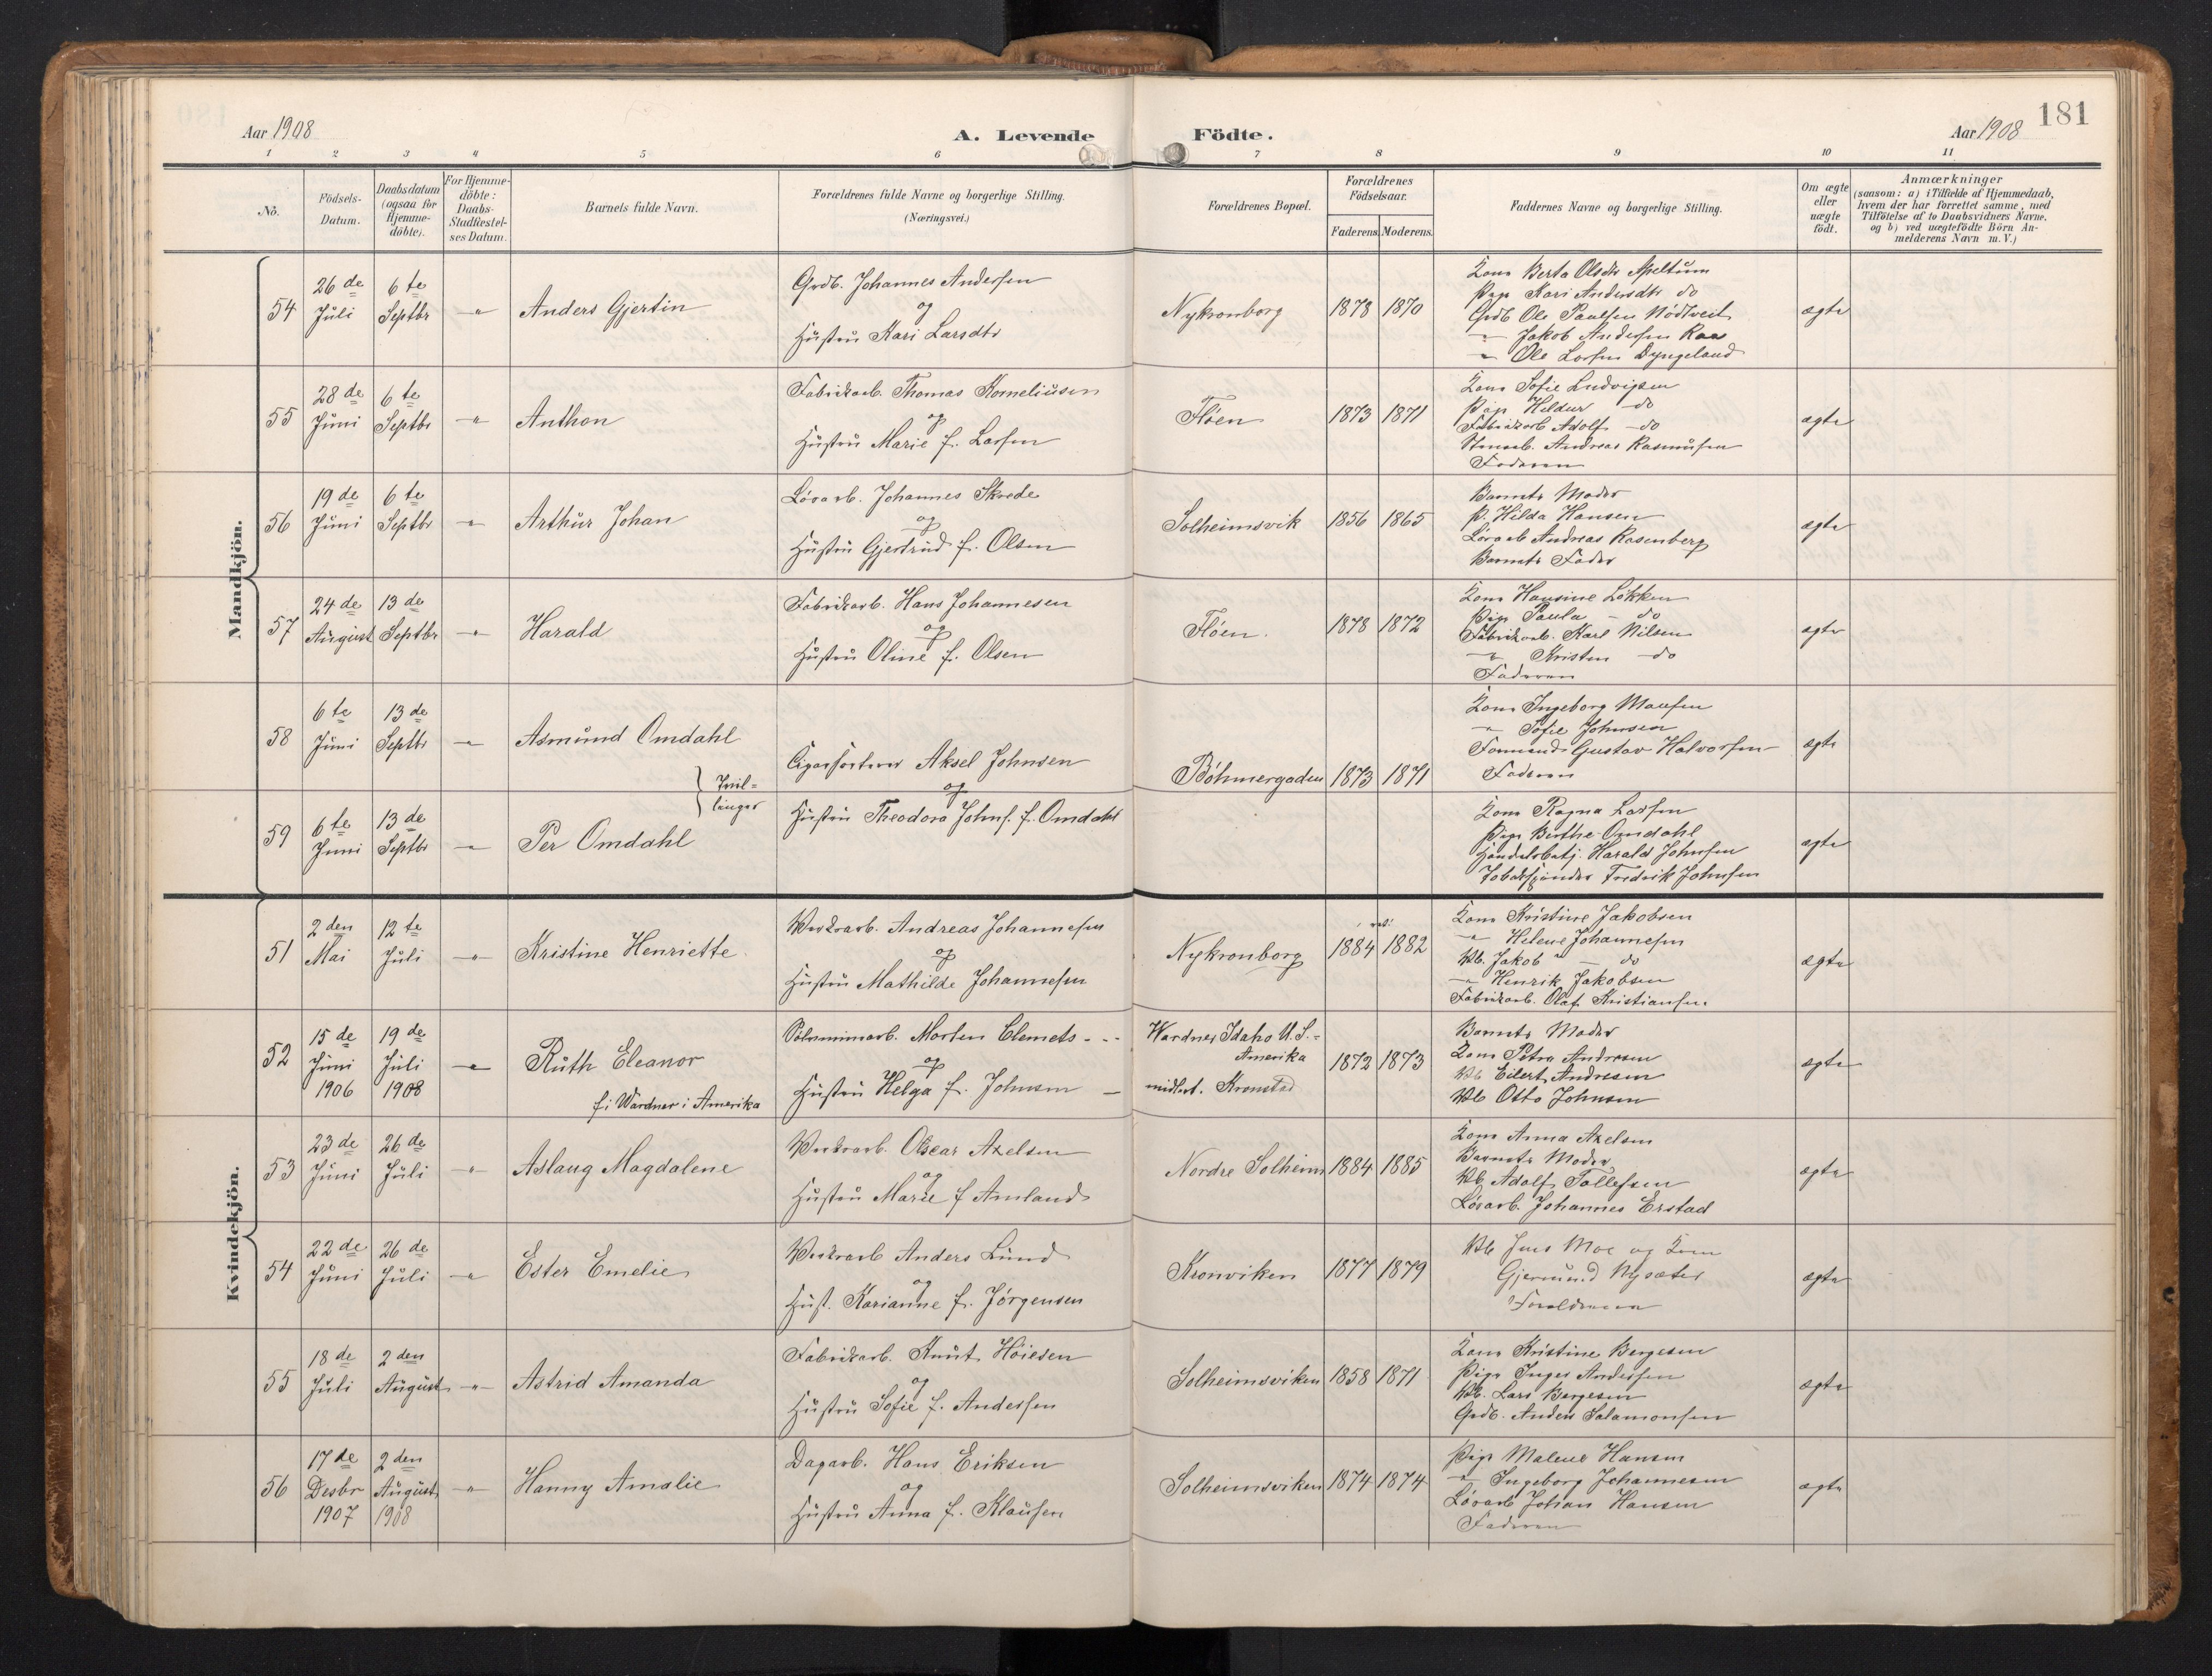 181
Aar 1908
A. Levende Födte.
Aar 1908
1 2 3 4 5 6 7 8 9 10 11
No. Födsels-Datum. Daabsdatum (ogsaa for Hjemme-döbte). For Hjemme-döbte: Daabs-Stadfæstel-ses Datum. Barnets fulde Navn. Forældrenes fulde Navne og borgerlige Stilling. (Næringsvei.) Forældrenes Bopæl. Forældrenes Födselsaar. Faderens. Moderens. Faddernes Navne og borgerlige Stilling. Om ægte eller uægte födt. Anmærkninger (saasom: a) i Tilfælde af Hjemmedaab, hvem der har forrettet samme, med Tilföielse af to Daabsvidners Navne, og b) ved uægtefödte Börn An-melderens Navn m.V.)
Mandkjön.
54 26de Juli 6te Septbr - " - Anders Gjertin
Grdb. Johannes Andersen
og
Hustru Kari Larsdtr
Nykronborg 1878 1870
Kone Berta Olsdtr Apeltum
Pige Kari Andersdtr do
Grdb Ole Paulsen Nødtveit
- " - Jakob Andersen Raa
- " - Ole Larsen Dyngeland
ægte
55 28de Juni 6te Septbr - " - Anthon
Fabrikarb. Thomas Korneliusen
og
Hustru Marie f. Larsen
Fløen 1873 1871
Kone Sofie Ludvigsen
Pige Heldur - do
Fabrikarb Adolf - do
Andreas Rasmusen
Faderen
ægte
56 19de Juni 6te Septbr - " - Arthur Johan
Løsarb. Johannes Skrede
og
Hustru Gjertrud f. Olsen
Solheimsvik 1856 1865
Barnets Moder
P. Hilda Hansen
Løsarb Andreas Rosenberg
Barnets Fader
ægte
57 24de August 13de Septbr - " - Harald
Fabrikarb. Hans Johannesen
og
Hustru Oline f. Olsen
Fløen. 1878 1872
Kone Hansine Løkken
Pige Paula - do
Fabrikarb. Karl Nilsen
- " - Kristen - do
Faderen
ægte
58 6te Juni 13de Septbr - " - Asmund Omdahl
Cigarsorterer Aksel Johnsen
og
Tvil-
linger
Bøhmergaden 1873 1871
Kone Ingeborg Monsen
- " - Sofie Johnsen
Formand Gustav Halvorsen
Faderen
ægte
59 6te Juni 13de Septbr - " - Per Omdahl
Hustru Theodora Johns. f. Omdahl
Kone Ragna Larsen
Pige Birthe Omdahl
Handelsbetj. Harald Johnsen
Fredrik Johnsen
ægte
Kvindekjön.
51 2den Mai 12te Juli - " - Kristine Henriette
Verksarb. Andreas Johannesen
og
Hustru Mathilde Johannesen
Nykronborg 1884 1882
Kone Kristine Jakobsen
- " - Helene Johannesen
Vb. Jakob - do
- " - Henrik Jakobsen
Fabrikarb. Olaf Kristiansen.
ægte
52 15de Juni 1906 19de Juli 1908 - " - Ruth Eleanor
f. i Wardner i Amerika
Sølvminearb. Morten Clemets - - -
og
Hustru Helga f. Johnsen
Wardner Idaho U.S.=
Amerika
midlert. Kronstad
1872 1873
Barnets Moder
Kone Petra Andresen
Vb Eilert Andresen
Vb Otto Johnsen
ægte
53 23de Juni 26de Juli - " - Aslaug Magdalene
Verksarb. Oscar Axelsen
og
Hustru Marie f Amland
Nordre Solheim 1884 1885
Kone Anna Axelsen
Barnets Moder
Vb. Adolf Tollefsen
Løsarb. Johannes Erstad
ægte
54 22de Juni 26de Juli - " - Ester Emelie
Verksarb Anders Lund
og
Hust. Karianne f. Jørgensen
Kronviken 1877 1879
Vb Jens Moe og Kone
Gjermund Nysæter
Forældrene
ægte
55 18de Juli 2den August - " - Astrid Amanda
Fabrikarb. Knut Høiesen
og
Hustru Sofie f. Andersen
Solheimsviken 1858 1871
Kone Kristine Bergesen
Pige Inger Andersen
Vb. Lars Bergesen
Grdb. Anders Salamonsen
ægte
56 17de Desbr 1907 2den August 1908 - " - Hanny Amalie
Dagarb. Hans Eriksen
og
Hustru Anna f. Klausen
Solheimsviken 1874 1874
Pige Malene Hansen
- " - Ingeborg Johannesen
Løsarb Johan Hansen
Faderen
ægte